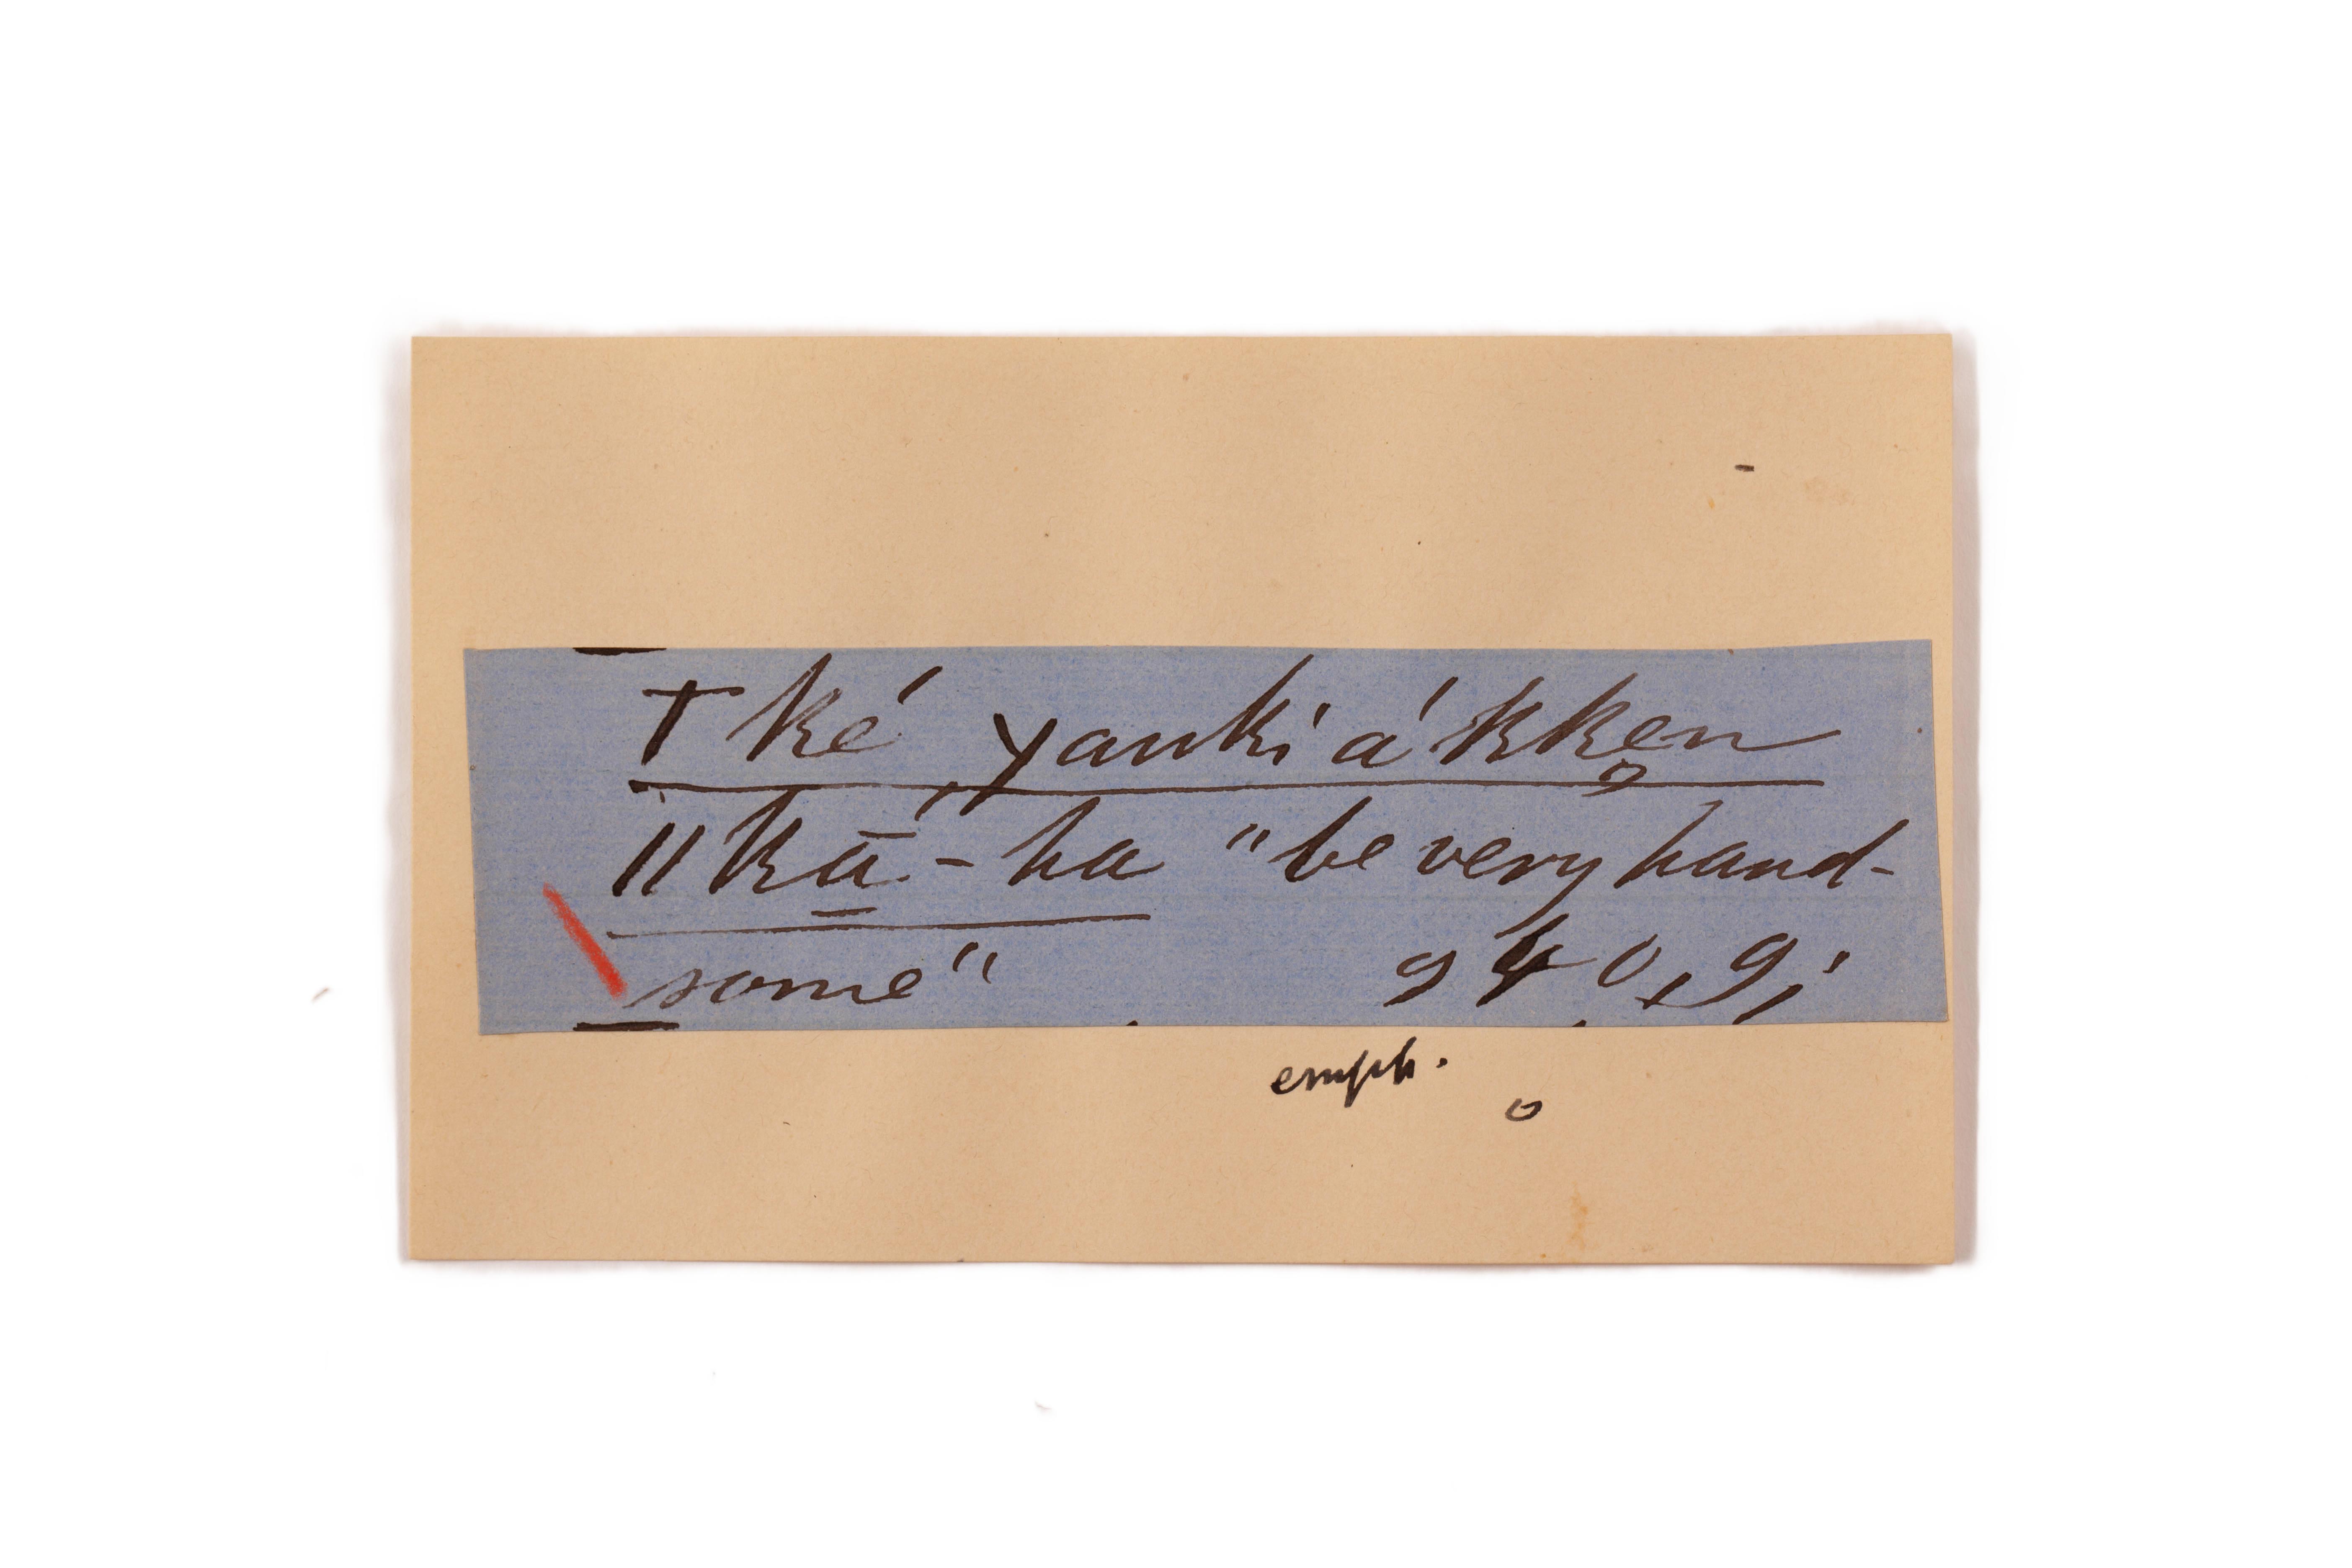 Tké yauki á kken̥
ǁkā̱́-ha "be very hand-
some"
emph.